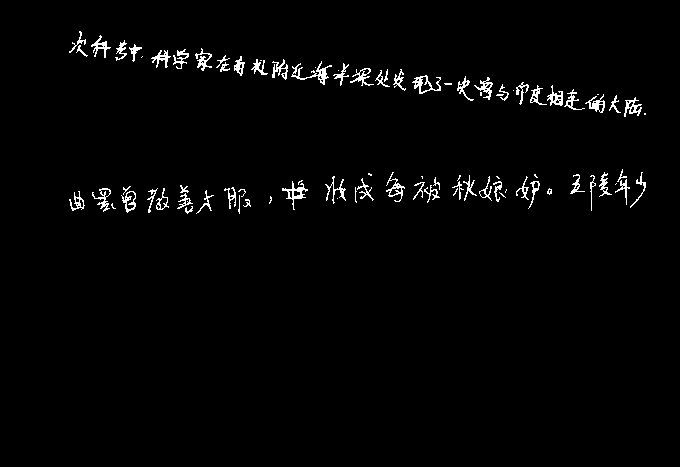 次科考中,科学家在南极附近海半深处发现了一史曾与印度相连的大陆.
曲罢曾教善才服,妆成每被秋娘妒。五陵年少